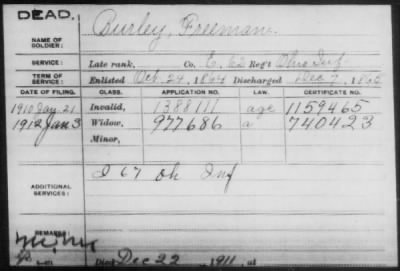 DEAD.
NAME OF SOLDIER: Burley, Freeman.
SERVICE: Late rank, Co. E, 62 Reg't Ohio Inf.
TERM OF SERVICE: Enlisted Oct. 24, 1864 Discharged Dec 7, 1865
DATE OF FILING. CLASS. APPLICATION NO. LAW. CERTIFICATE NO.
1910 21 Invalid, 1388111 age 1159465
1912 Jan 3 Widow, 977686 a 740423
Minor,
ADDITIONAL SERVICES: I 67 Oh Inf
REMARKS:
Died Dec 22, 1911, at